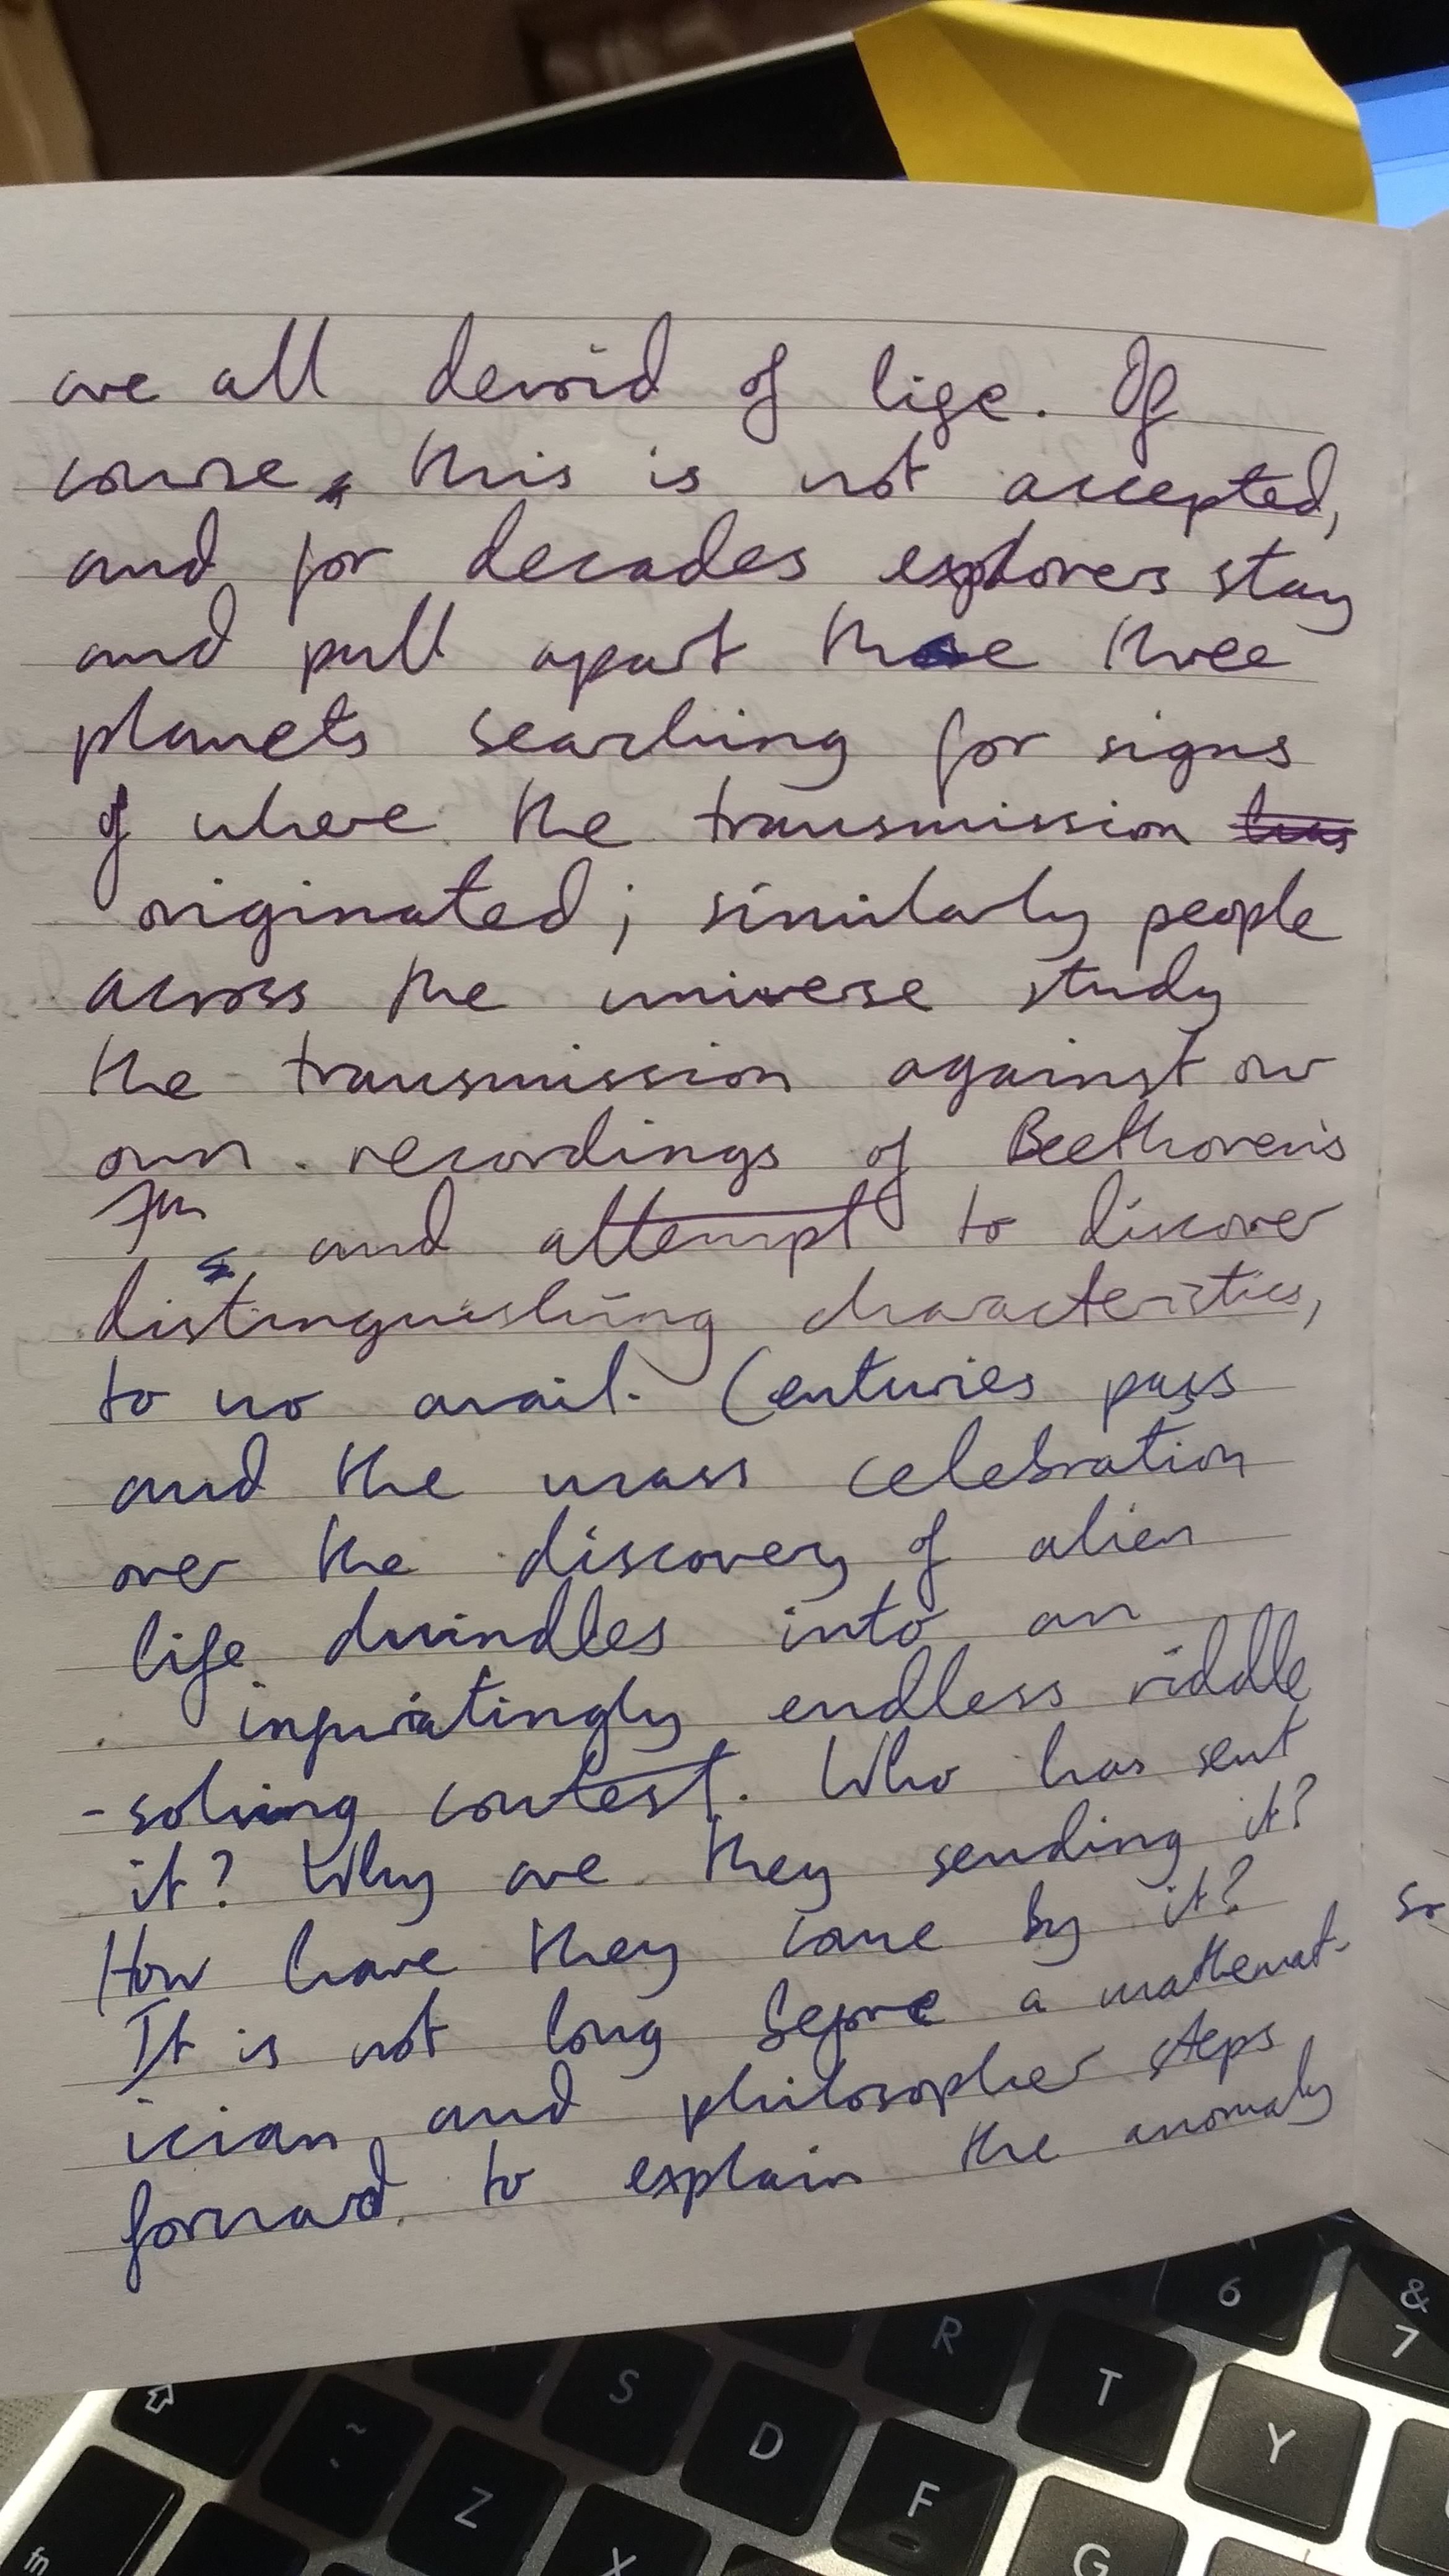 are all devoid of life. Of
course, this is not accepted,
and for decades explorers stay
and pull apart these three
planets searching for signs
of where the transmission has
originated; similarly people
across the universe study
the transmission against our
own recordings of Beethoven's
7th, and attempt to discover
distinguishing characteristics,
to no avail. Centuries pass
and the mass celebration
over the discovery of alien
life dwindles into an
infuriatingly endless riddle
-solving contest. Who has sent
it? Why are they sending it?
How have they come by it?
It is not long before a mathemat-
ician and philosopher steps
forward to explain the anomaly
so
6
&
7
R
T
Y
S
D
F
G
~
Z
X
fn